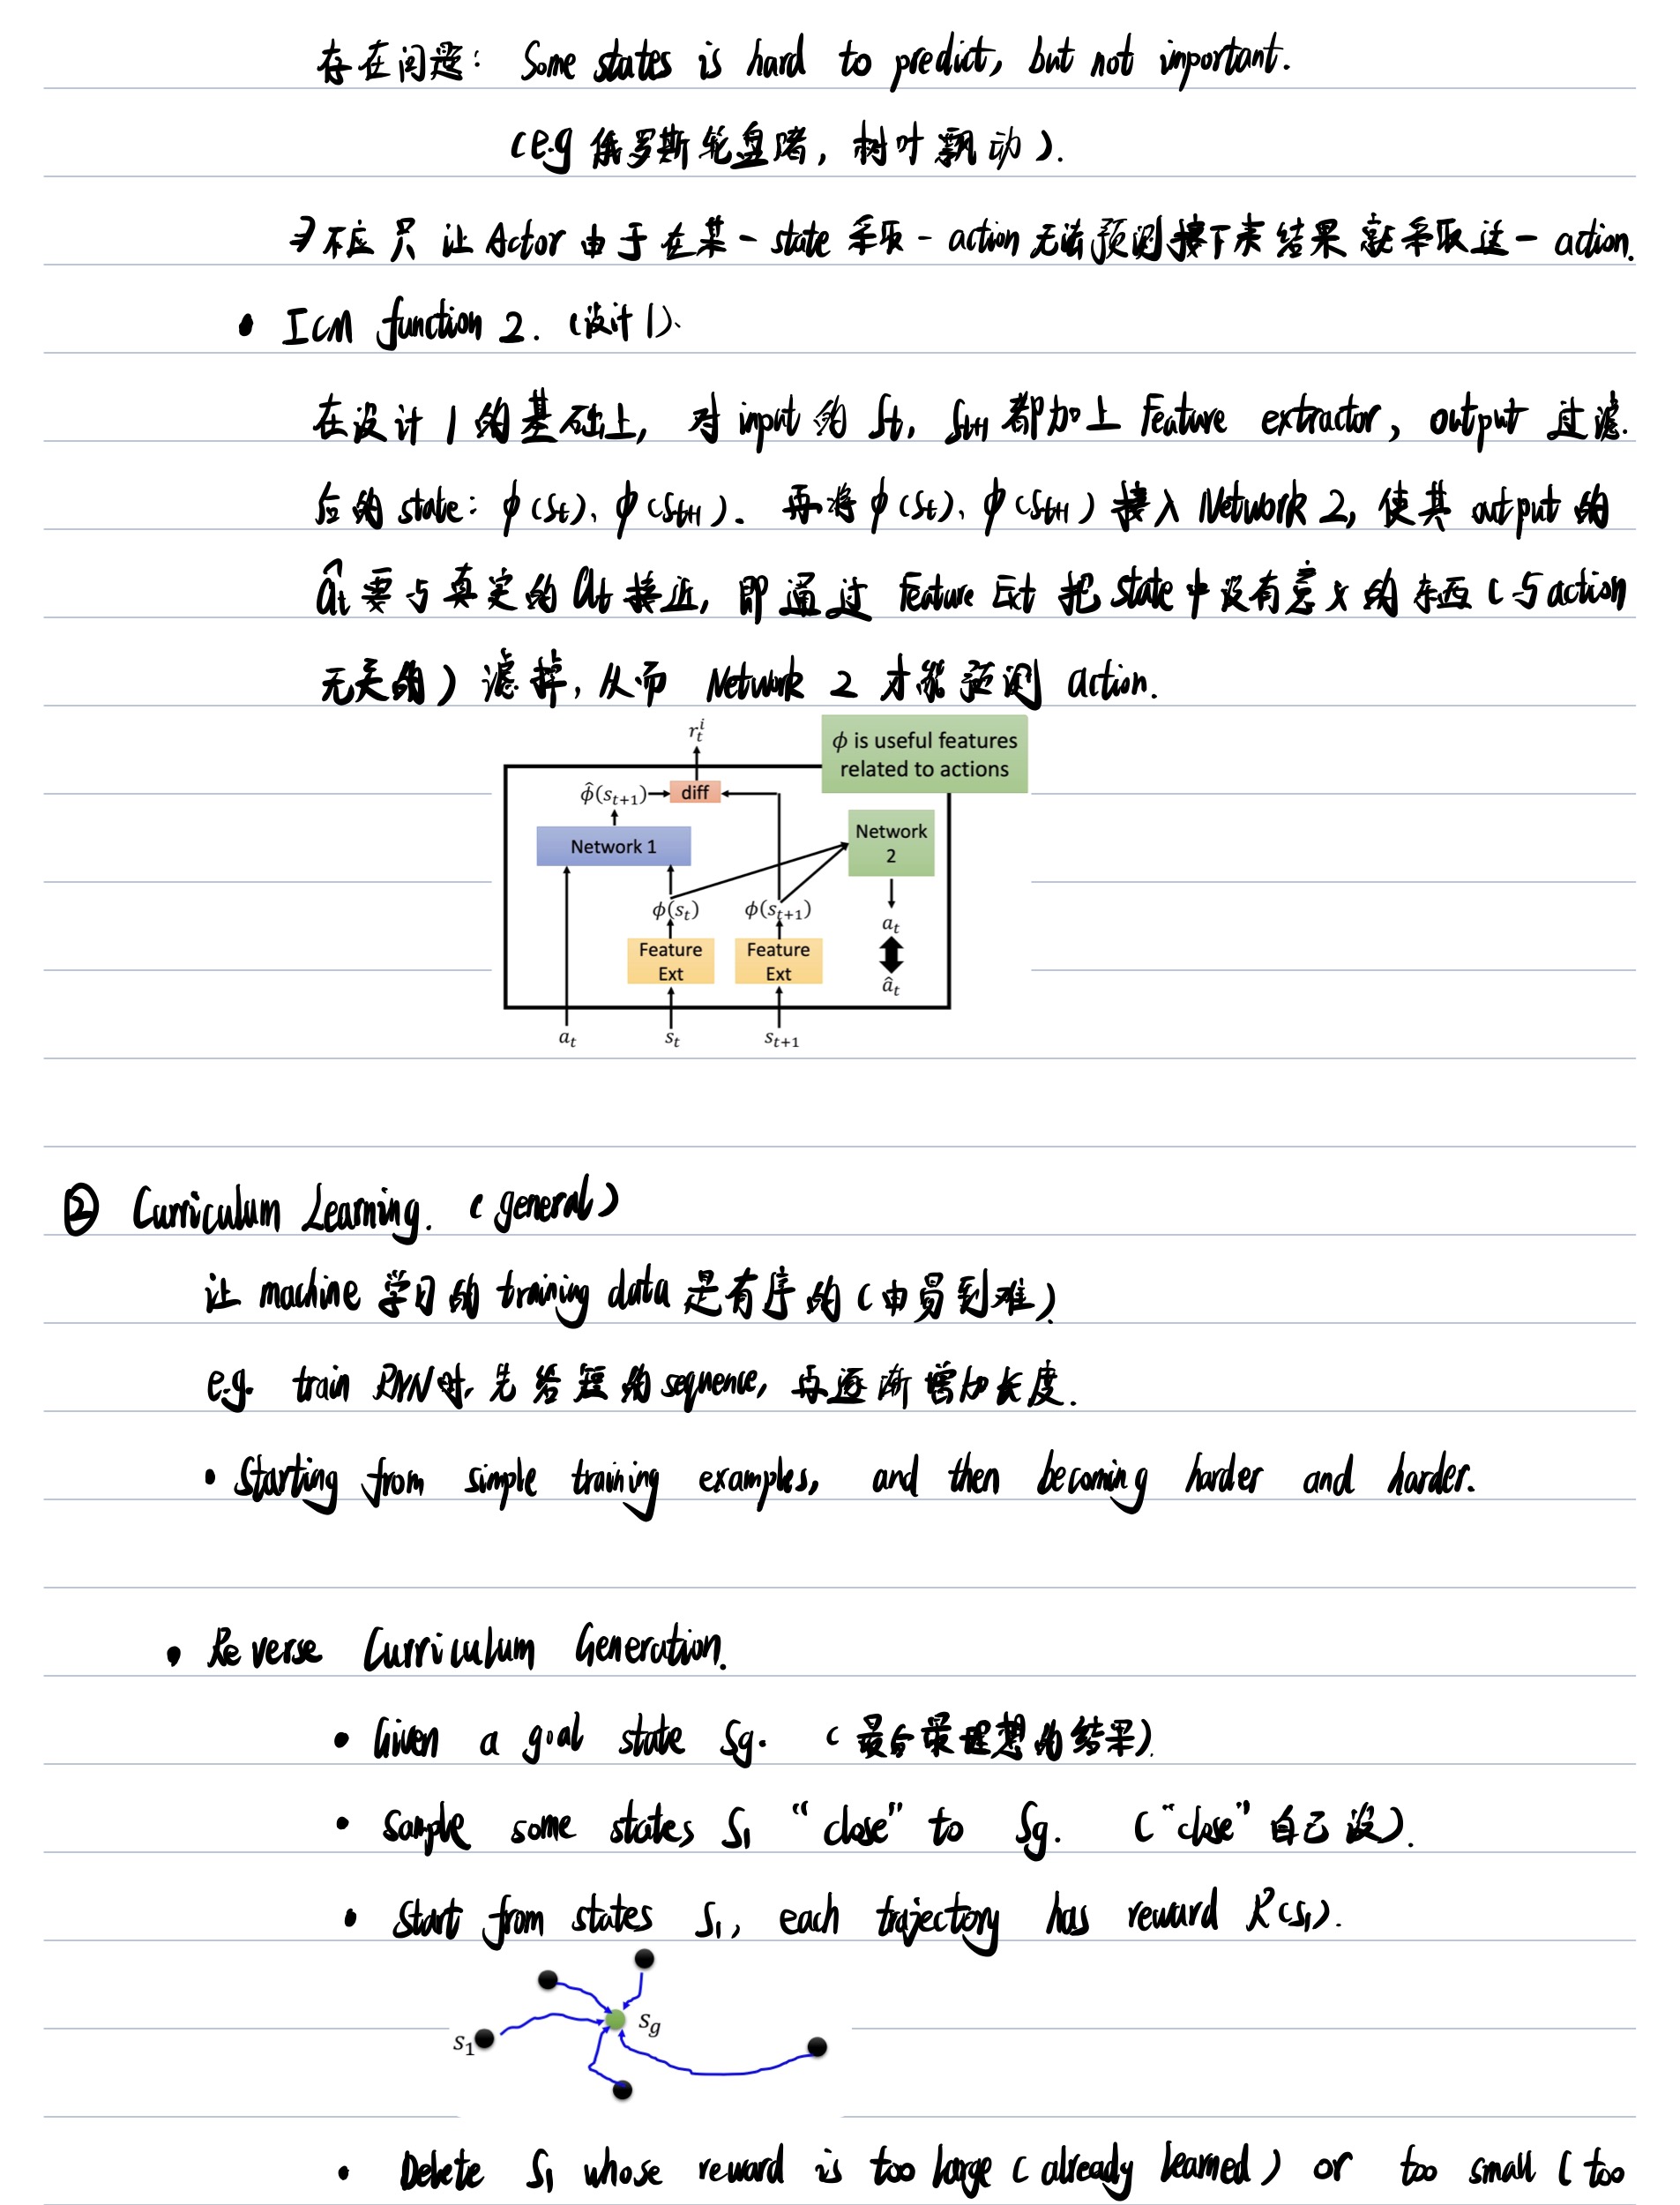 存在问题： Some states is hard to predict, but not important.
（e.g 俄罗斯轮盘赌，树叶飘动）.
⇒不应只 让 Actor 由于在某一 state 采取一 action 无法预测接下来结果 就采取这一 action.
• ICM function 2. （设计1）、
在设计 1 的基础上，对 input 的 St，St+1 都加上 Feature extractor，output 过滤.
后的 state：ϕ(St)、ϕ(St+1). 再将 ϕ(St)、ϕ(St+1) 接入 Network 2，使其 output 的
ât 要与真实的 at 接近，即通过 Feature Ext 把 state 中没有意义的东西（与action
无关的）滤掉，从而 Network 2 才能预测 action.
r_t^i
ϕ is useful features
related to actions
ϕ̂(s_{t+1})
diff
Network 1
Network
2
ϕ(s_t)
ϕ(s_{t+1})
a_t
Feature
Ext
Feature
Ext
â_t
a_t
s_t
s_{t+1}
② Curriculum Learning. （general）
让 machine 学习的 training data 是有序的（由易到难）.
e.g. train RNN时，先给短的 sequence，再逐渐增加长度.
• Starting from simple training examples, and then becoming harder and harder.
• Reverse Curriculum Generation.
• Given a goal state Sg. （最后最理想的结果）.
• Sample some states S1 “close” to Sg. （“close” 自己设）.
• Start from states S1, each trajectory has reward R(S1).
s_g
s_1
• Delete S1 whose reward is too large (already learned) or too small (too